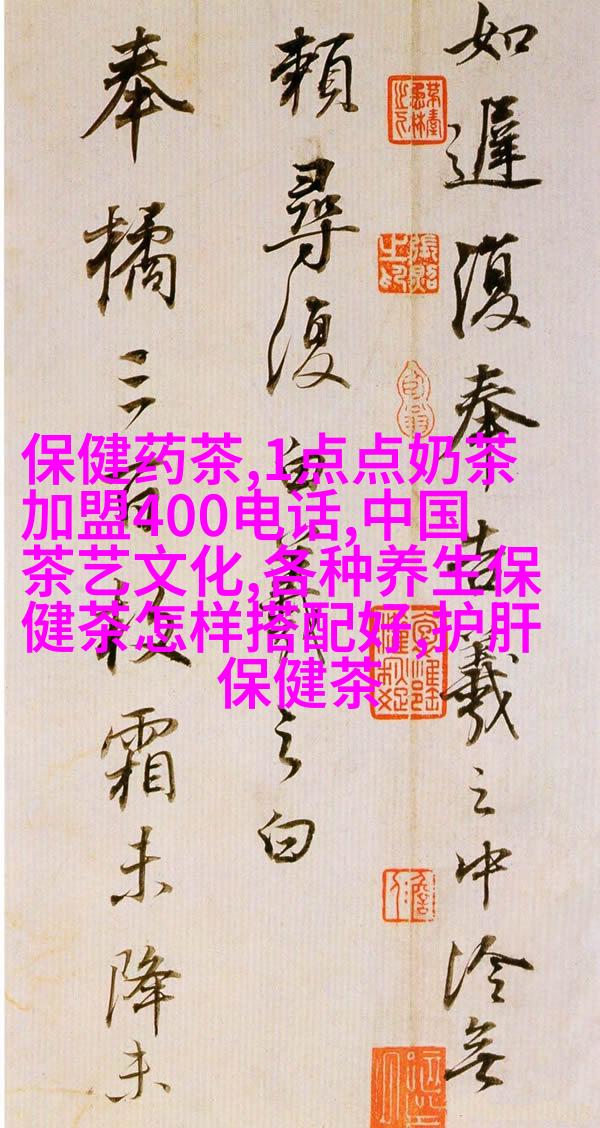 如遲復奉告羲之中冷無
賴尋復白羲之白
奉橘三百枚霜未降未
保健药茶,1点点奶茶
加盟400电话,中国
茶艺文化,各种养生保
健茶怎样搭配好,护肝
保健茶